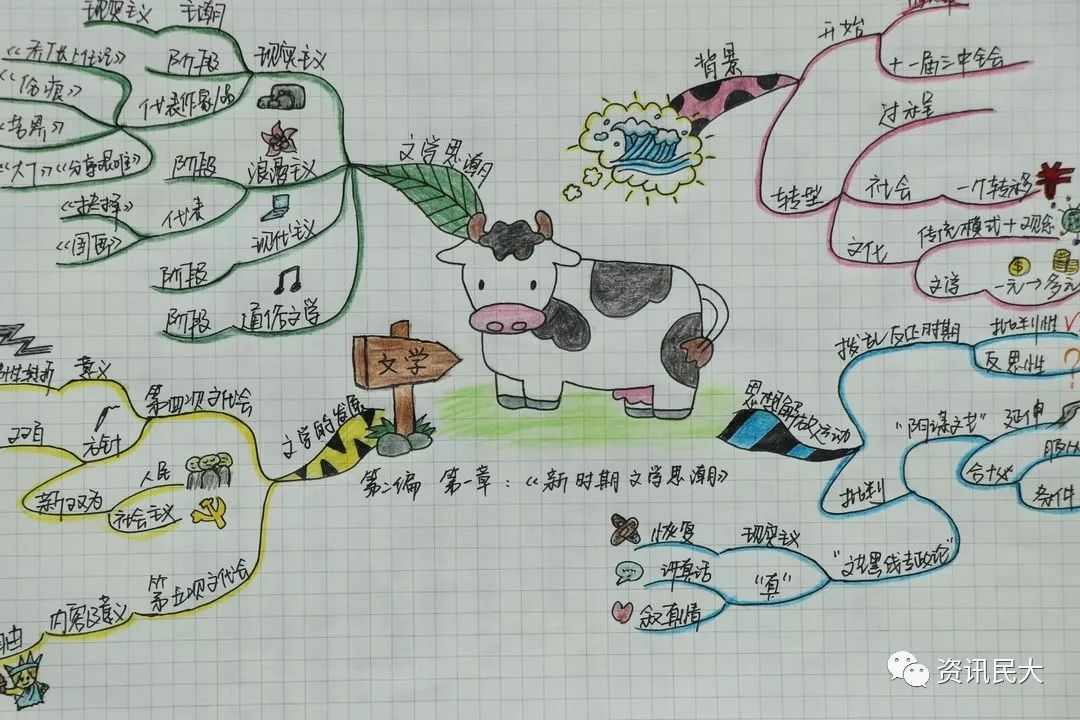 现实主义
主潮
《伤痕》
阶段
现实主义
代表作家作品
阶段
浪漫主义
代表
《抉择》
《国画》
现代主义
阶段
阶段
通俗文学
文学思潮
背景
开始
十一届三中全会
过程
转型
社会
一个转移
文化
传统模式+观念
文学
一元→多元
文学
意义
第四次文代会
双百
方针
人民
新双为
社会主义
文学的发展
第五次文代会
内容及意义
自由
第二编 第一章：《新时期文学思潮》
思想解放运动
拨乱反正时期
批判性
反思性
批判
"阴谋文艺"
条件
"文艺黑线专政论"
恢复
现实主义
讲真话
"真"
叙真情
资讯民大